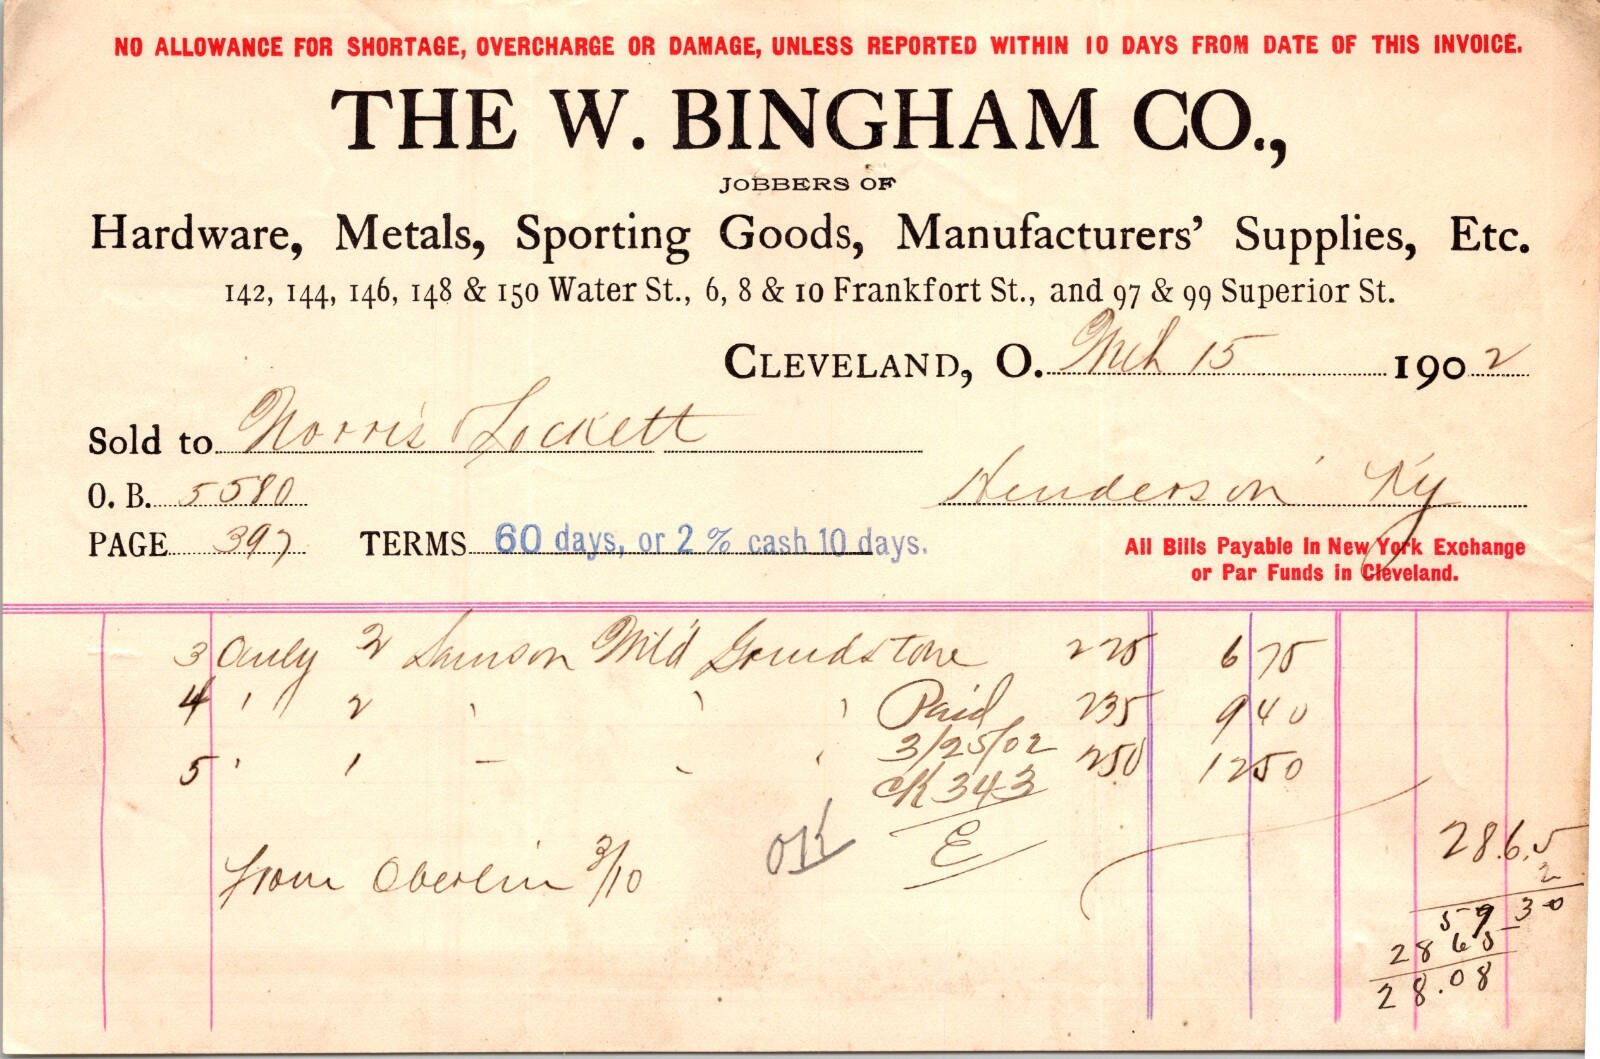 NO ALLOWANCE FOR SHORTAGE, OVERCHARGE OR DAMAGE, UNLESS REPORTED WITHIN 10 DAYS FROM DATE OF THIS INVOICE.
THE W. BINGHAM CO.,
JOBBERS OF
Hardware, Metals, Sporting Goods, Manufacturers' Supplies, Etc.
142, 144, 146, 148 & 150 Water St., 6, 8 & 10 Frankfort St., and 97 & 99 Superior St.
CLEVELAND, O. Mch 15 1902
Sold to Norris Lockett
Henderson Ky
O. B. 5580
PAGE 397 TERMS 60 days, or 2 % cash 10 days.
All Bills Payable In New York Exchange
or Par Funds in Cleveland.
3 Only 2 Samson Mtd Grindstone 225 6 75
4 " 2 " " " 235 9 40
Paid
3/25/02
5 " 1 " " " 250 12 50
CK 343
E
OK
from Oberlin 3/10
28.65
2
5930
2865
28.08